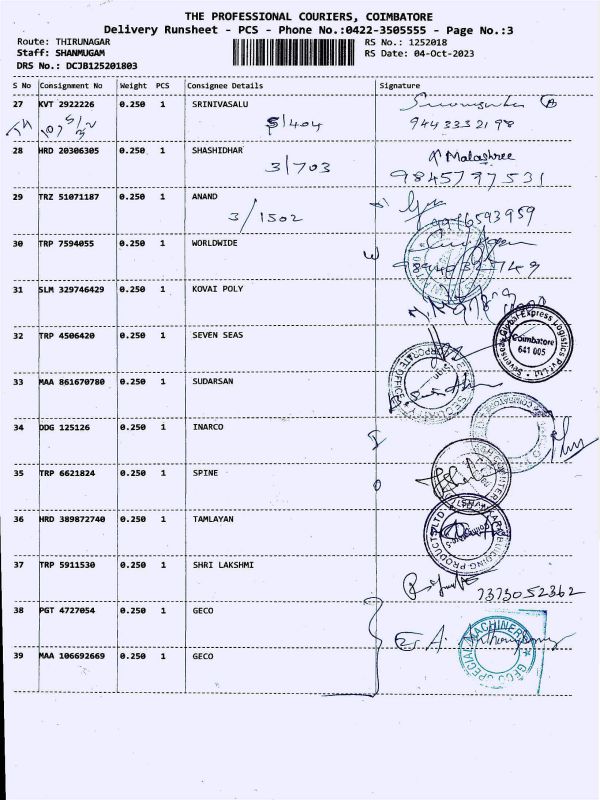 THE PROFESSIONAL COURIERS, COIMBATORE
Delivery Runsheet - PCS - Phone No.:0422-3505555 - Page No.:3
Route: THIRUNAGAR RS No.: 1252018
Staff: SHANMUGAM RS Date: 04-Oct-2023
DRS No.: DCJB125201803
S No Consignment No Weight PCS Consignee Details Signature
27 KVT 2922226 0.250 1 SRINIVASALU
5/404 9443332198
28 HRD 20306305 0.250 1 SHASHIDHAR Malashree
3/703 9845797531
29 TRZ 51071187 0.250 1 ANAND
3/1502 9916593959
30 TRP 7594055 0.250 1 WORLDWIDE
31 SLM 329746429 0.250 1 KOVAI POLY
32 TRP 4506420 0.250 1 SEVEN SEAS
Global Express Logistics Pvt Ltd
Coimbatore
641 005
33 MAA 861670780 0.250 1 SUDARSAN
CORPORATE OFFICE
34 DDG 125126 0.250 1 INARCO
35 TRP 6621824 0.250 1 SPINE
36 HRD 389872740 0.250 1 TAMLAYAN
BUILDING PRODUCTS LTD
37 TRP 5911530 0.250 1 SHRI LAKSHMI
7373052362
38 PGT 4727054 0.250 1 GECO
39 MAA 106692669 0.250 1 GECO
GECO SPECIAL MACHINERY